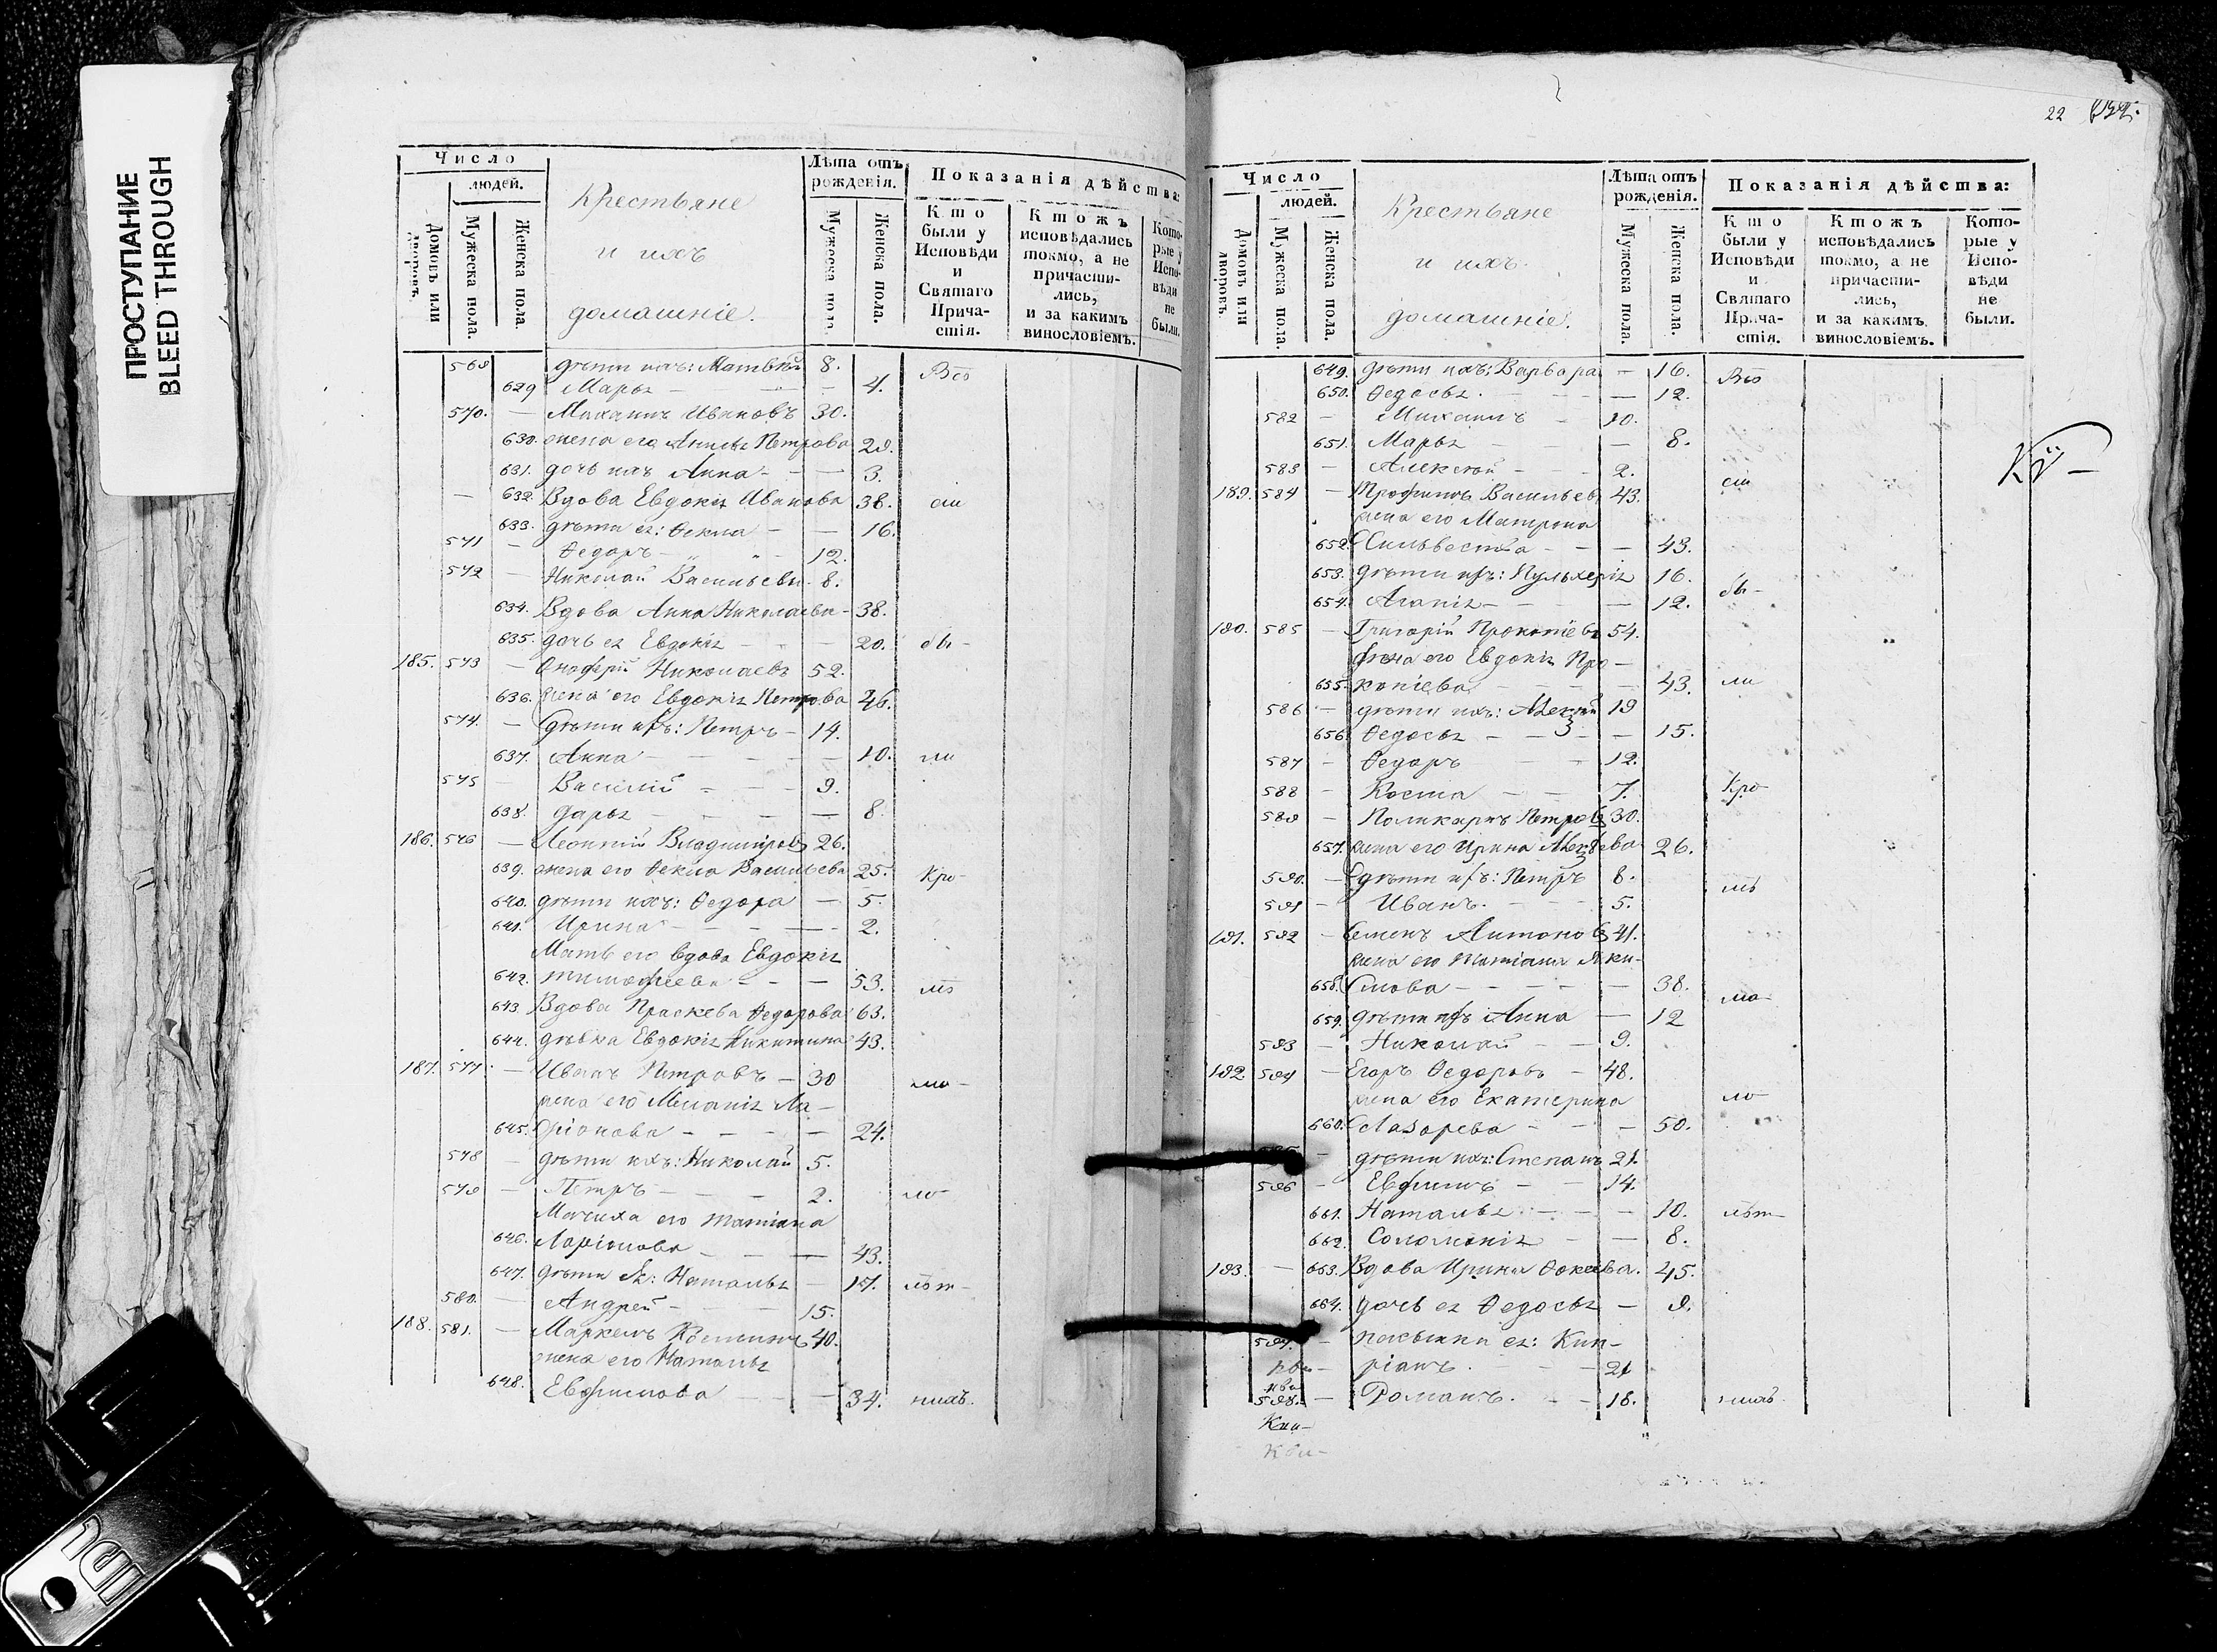 ПРОСТУПАНИЕ
BLEED THROUGH
Число
людей.
Домовъ или дворовъ.
Мужеска пола.
Женска пола.
Крестьяне
и ихъ
домашніе.
Лѣта отъ
рожденія.
Мужеска пола.
Женска пола.
Показанія дѣйства:
Кто
были у
Исповѣди
и
Святаго
Прича-
стія.
Ктожъ
исповѣдались
токмо, а не
причасти-
лись,
и за какимъ
винословіемъ.
Кото-
рые у
Испо-
вѣди
не
были.
569 дѣти ихъ: Матвѣй 8. Всѣ
629 Марья 4.
570. — Михаилъ Ивановъ 30.
630. жена его Петрова 29.
631. дочь ихъ Анна 3.
— 632. Вдова Евдокія Иванова 38. си
633. дѣти ея: Ѳекла 16.
571 — Ѳедоръ 12.
572 — Николай Васильевъ 8.
634. Вдова Анна Николаева 38.
635. дочь ея Евдокія 20. бы-
185. 573 — Онофрій Николаевъ 52.
636. жена его Евдокія Петрова 46.
574. — дѣти ихъ: Петръ 14.
637. Анна 10. ли
575 — Василій 9.
638. Дарья 8.
186. 576 — Леонтій Владиміровъ 26.
639. жена его Ѳекла Васильева 25. Кро-
640. дѣти ихъ: Ѳедора 5.
641. Ирина 2.
Мать его вдова Евдокія
642. Тимофеева 53. мѣ
643. Вдова Праскева Ѳедорова 63.
644. дѣвка Евдокія Никитина 43.
187. 577. — Иванъ Петровъ 30 ма-
жена его Меланія Ла-
645. ріонова 24.
578 — дѣти ихъ: Николай 5.
579 — Петръ 2. ло-
Мачиха его Татіана
646. Ларіонова 43.
647. дѣти ея: Наталья 17. лѣт-
580. — Андрей 15.
188. 581. — Маркелъ 40.
жена его Наталья
648. Евфимова 34. нихъ.
22
Число
людей.
Домовъ или дворовъ.
Мужеска пола.
Женска пола.
Крестьяне
и ихъ
домашніе.
Лѣта отъ
рожденія.
Мужеска пола.
Женска пола.
Показанія дѣйства:
Кто
были у
Исповѣди
и
Святаго
Прича-
стія.
Ктожъ
исповѣдались
токмо, а не
причасти-
лись,
и за какимъ
винословіемъ.
Кото-
рые у
Испо-
вѣди
не
были.
649. дѣти ихъ: Варвара — 16. Всѣ
650. Ѳедосья — 12.
582 — Михаилъ 10.
651. Марья — 8.
583 — Алексѣй 2.
189. 584 — Трофимъ Васильевъ 43. сіи
жена его Матрона
652. Сильвестра — 43.
653. дѣти ихъ: Пульхерія 16.
654. Агапія — 12. бы-
190. 585 — Григорій Прокопіевъ 54.
жена его Евдокія Про-
655. копіева 43. ли
586 — дѣти ихъ: Алексѣй 19
656. Ѳедосья — 15.
587 — Ѳедоръ 12.
588 — Косма 7. Кро-
589 — Поликарпъ Петровъ 30.
657. жена его Ирина Алексѣева 26.
590. — дѣти ихъ: Петръ 8. мѣ
591 — Иванъ. 5.
191. 592 — Семенъ Антоновъ 41.
жена его Татіана Яки-
658. мова 38.
ма-
659. дѣти ихъ Анна — 12
593 — Николай 9.
192 594 — Егоръ Ѳедоровъ 48.
жена его Екатерина ло-
660. Лазорева 50.
595 — дѣти ихъ: Степанъ 21.
596 — Евфимъ 14.
661. Наталья 10. лѣт-
662. Соломонія 8.
193. — 663. Вдова Ирина Фокеева. 45.
664. дочь ея Ѳедосья — 9.
597. — пасынки ея: Кип-
ріанъ. 21
598. — Романъ. 18. нихъ.